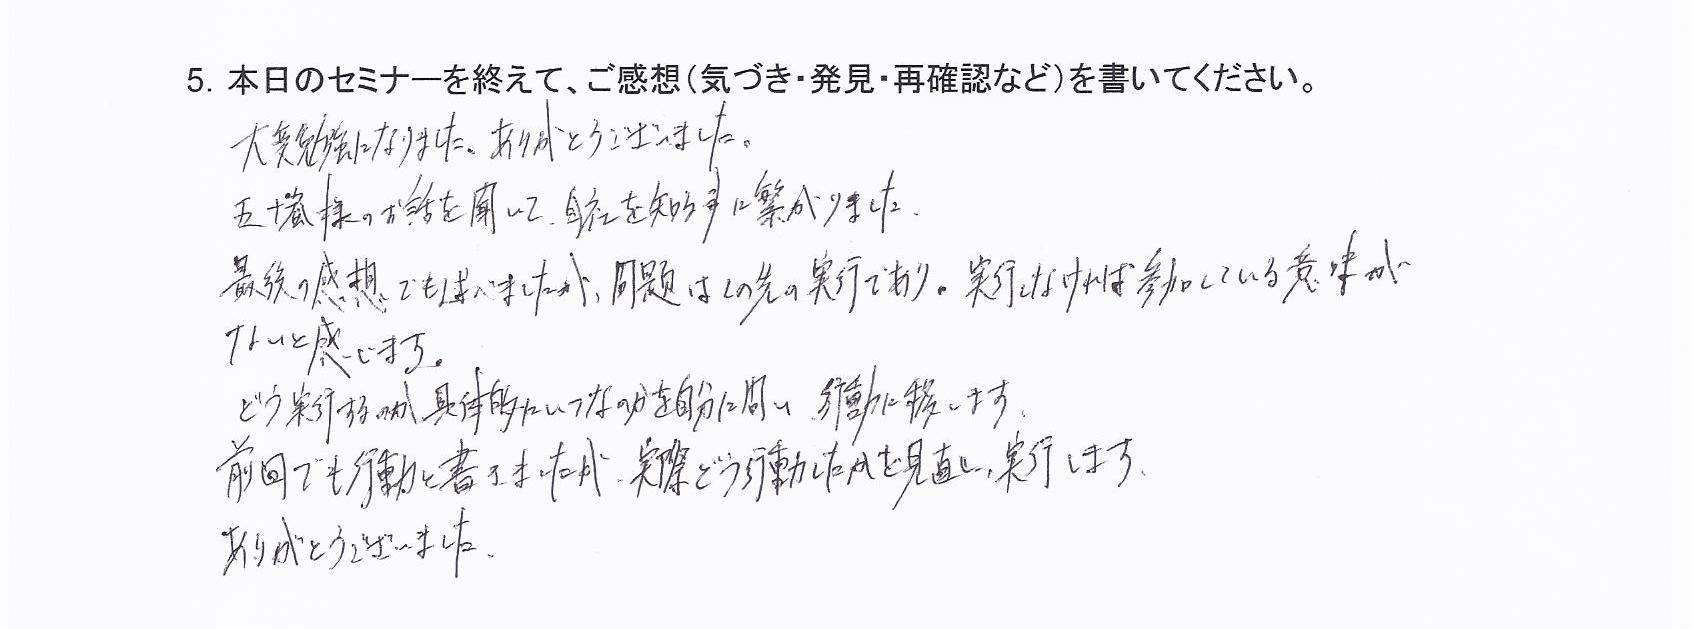 5. 本日のセミナーを終えて、ご感想(気づき・発見・再確認など)を書いてください。
大変勉強になりました。ありがとうございました。
五十嵐様のお話を聞いて、自社を知る事に繋がりました。
最後の感想でも述べましたが、問題はこの先の実行であり。実行しなければ参加している意味が
ないと感じます。
どう実行するのか、具体的にいつなのかを自分に問い 行動に移します。
前回でも行動と書きましたが、実際どう行動したかを見直し、実行します。
ありがとうございました。